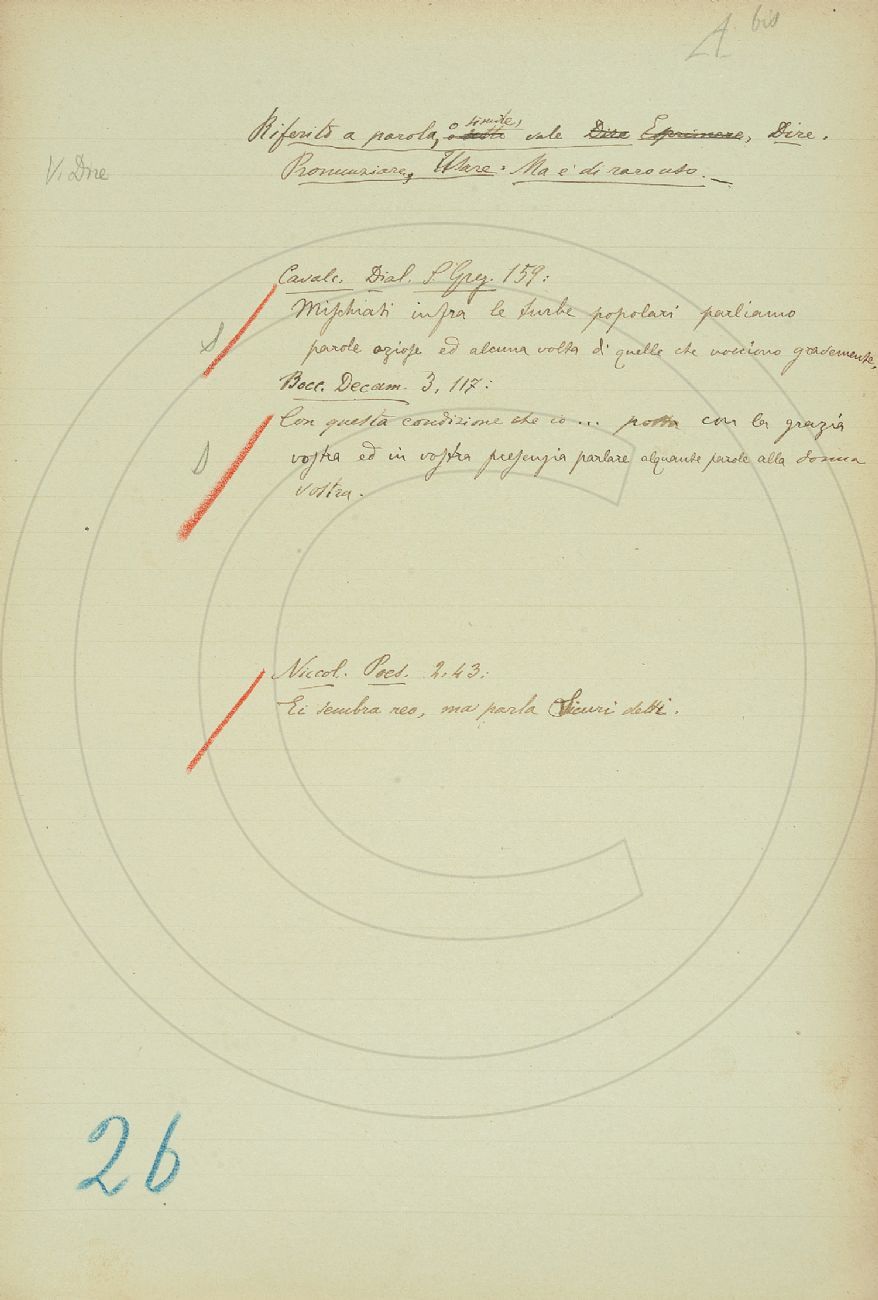 A bis
Riferito a parola, o detto simile, vale Dire Esprimere, Dire.
V. Dire
Pronunziare, Usare. Ma è di raro uso. —
Cavalc. Dial. S. Greg. 159:
Mischiati infra le turbe popolari parliamo
parole oziose ed alcuna volta di quelle che nocciono gravemente.
Bocc. Decam. 3, 117:
Con questa condizione che io ... possa con la grazia
vostra ed in vostra presenzia parlare alquante parole alla donna
vostra.
Niccol. Poes. 2.43:
Ei sembra reo, ma parla sicuri detti.
26